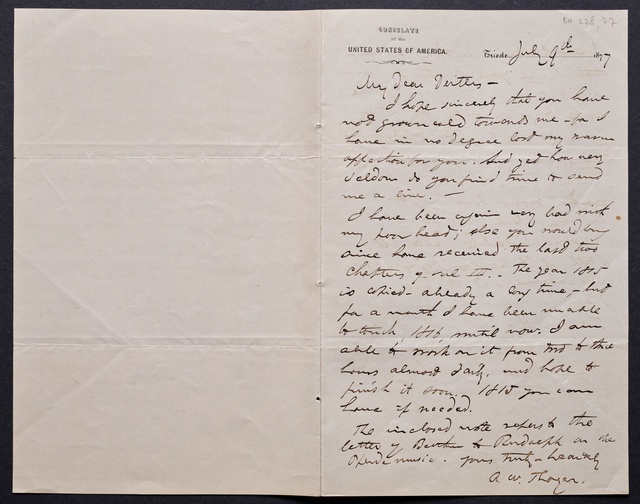 BH 228, 77
CONSULATE
of the
UNITED STATES OF AMERICA.
Trieste July 9th 1877
My Dear Deiters –
I hope sincerely that you have
not grown cold towards me – for I
have in no degree lost my warm
affection for you. And yet how very
seldom do you find time to send
me a line. –
I have been again very bad with
my poor head; else you would long
since have received the last two
chapters of vol III. – The year 1815
is copied – already a long time, – but
for a month I have been unable
to touch, 1816, until now. I am
able to work on it from two to three
hours almost daily, and hope to
finish it soon. 1815 you can
have if needed.
The inclosed note refers to the
letter of Beethn to Rudolph on the
music. Yours truly – heartily
A. W. Thayer.